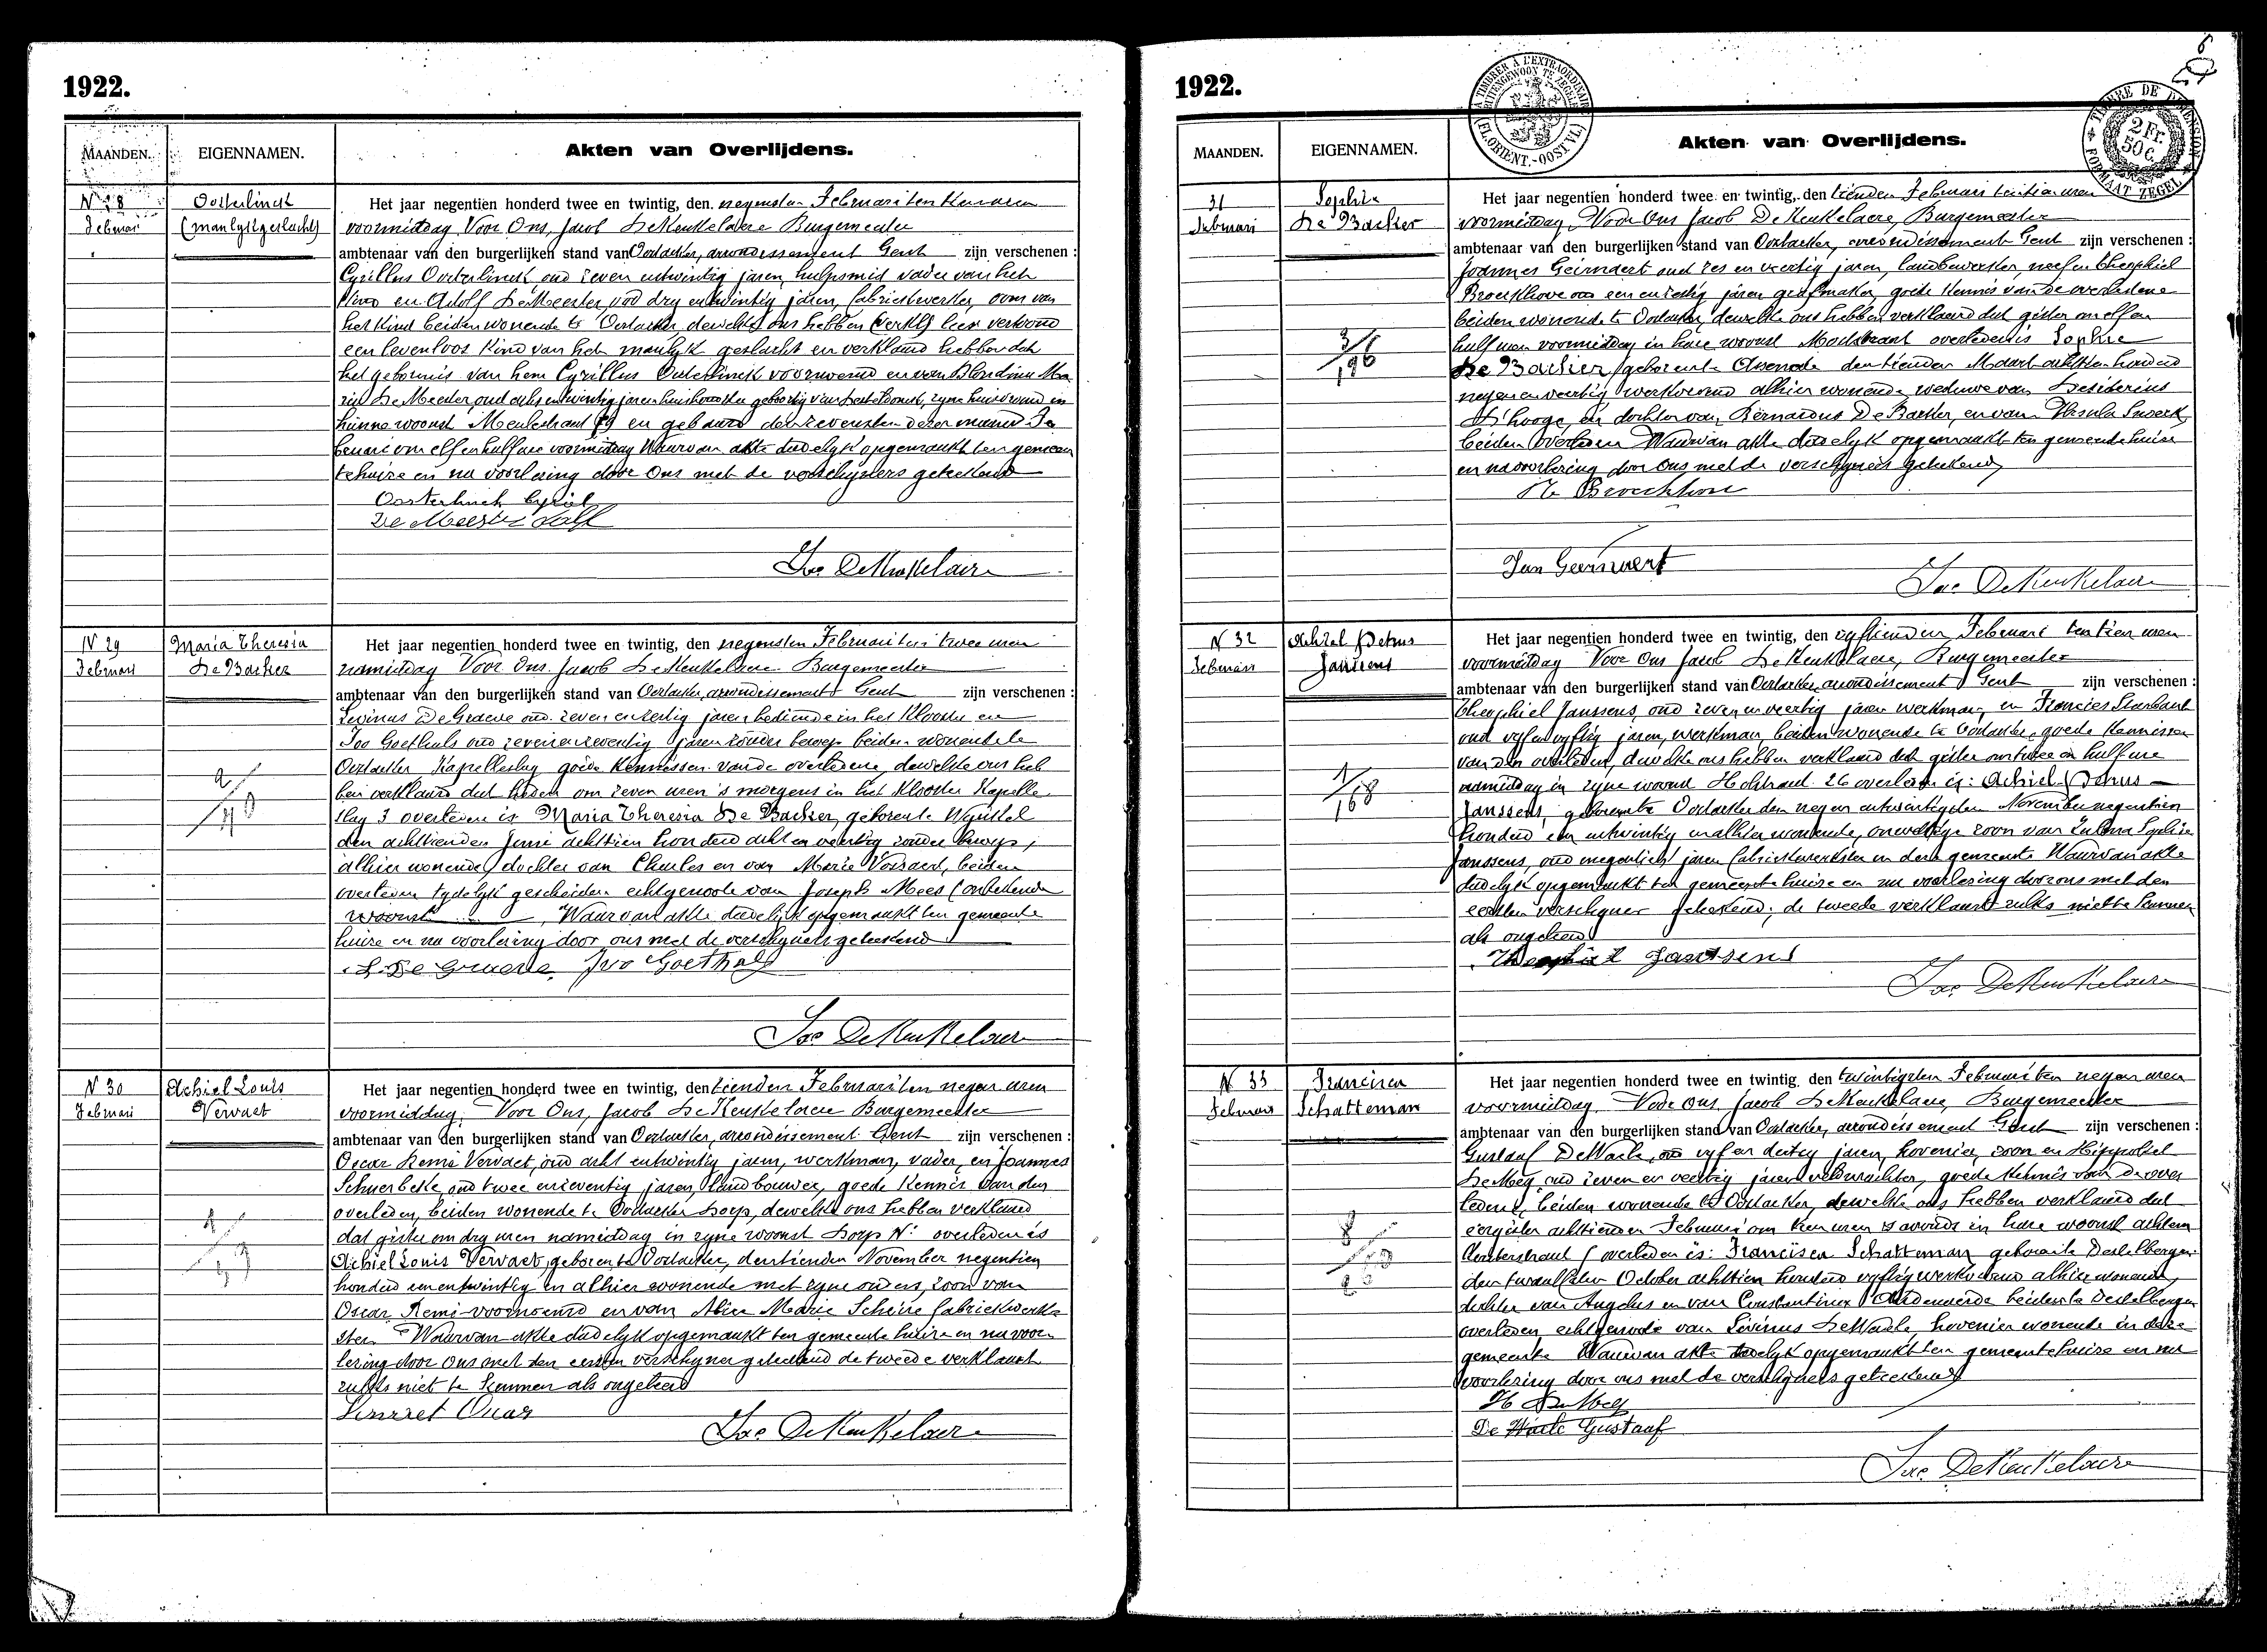 1922.
MAANDEN. EIGENNAMEN. Akten van Overlijdens.
N 28 Oosterlinck
Februari (manlyk geslacht)
Het jaar negentien honderd twee en twintig, den negensten Februari ten tien uren
voormiddag Voor Ons, Jacob De Keukelaere Burgemeester
ambtenaar van den burgerlijken stand van Oostacker, arrondissement Gent zijn verschenen :
Cyrillus Oosterlinck, oud zeven entwintig jaren, hulpsmid vader van het
Kind en Adolf De Meester, oud dry entwintig jaren, fabriekwerker, oom van
het Kind beiden wonende te Oostacker, dewelke ons hebben vertoond
een levenloos Kind van het manlyk geslacht en verklaard hebben dat
het geboren is van hem Cyrillus Oosterlinck voornoemd en van Blondina Ma
ria De Meester, oud acht entwintig jaren huishoudster geboortig van zyne huisvrouw in
hunne woonst Meulestraat 89 en gebaard den zevensten dezer maand Fe
bruari om elf en half ure voormiddag Waarvan akte dadelyk opgemaakt ten gemeen
tehuize en na voorlezing door Ons met de verschyners geteekend
Oosterlinck Cyriel
De Meester Adolf
Jac DeKeukelaere
N 29 Maria Theresia
Februari De Backer
Het jaar negentien honderd twee en twintig, den negensten Februari ten twee uren
namiddag Voor Ons Jacob De Keukelaere Burgemeester
ambtenaar van den burgerlijken stand van Oostacker, arrondissement Gent zijn verschenen :
Livinus De Graeve oud zeven enzestig jaren bediende in het Klooster en
Ivo Goethals oud zeven enzeventig jaren zonder beroep beiden wonende te
Oostacker Kapelleslag goede Kennissen van de overledene dewelke ons heb
ben verklaard dat heden om zeven uren 's morgens in het Klooster Kapelle
slag 3 overleden is Maria Theresia De Backer, geboren te
den achttienden Juni achttien honderd acht en veertig zonder beroep,
alhier wonende dochter van Charles en van Marie beiden
overleden tydelyk gescheiden echtgenoote van Joseph Mees (onbekende
woonst Waarvan akte dadelyk opgemaakt ten gemeente
huize en na voorlezing door ons met de verschyners geteekend
L. De Graeve Ivo Goethals
Jac DeKeukelaere
N 30 Achiel Louis
Februari Vervaet
Het jaar negentien honderd twee en twintig, den tienden Februari ten negen uren
voormiddag. Voor Ons, Jacob De Keukelaere Burgemeester
ambtenaar van den burgerlijken stand van Oostacker, arrondissement Gent zijn verschenen :
Oscar Remi Vervaet, oud acht entwintig jaren, werkman, vader, en Joannes
Schuerbeke, oud twee enzeventig jaren landbouwer, goede Kennis van den
overleden, beiden wonende te Oostacker Dorp, dewelke ons hebben verklaard
dat gister om dry uren namiddag in zyne woonst Dorp N: overleden is
Achiel Louis Vervaet, geboren te Oostacker, den tienden November negentien
honderd een entwintig en alhier wonende met zyne ouders, zoon van
Oscar Remi voornoemd en van Alice Marie Scheire fabriekwerk
ster. Waarvan akte dadelyk opgemaakt ten gemeente huize en na voor
lezing door Ons met den eersten verschyner geteekend de tweede verklaart
zulks niet te kunnen als ongeleerd
Jac DeKeukelaere
1922.
MAANDEN. EIGENNAMEN. Akten van Overlijdens.
31 Sophie
Februari De Backer
Het jaar negentien honderd twee en twintig, den tienden Februari ten tien uren
voormiddag, Voor Ons Jacob De Keukelaere, Burgemeester
ambtenaar van den burgerlijken stand van Oostacker, arrondissement Gent zijn verschenen :
Joannes Geirnaert oud zes en veertig jaren, landbewerker, neef en Theophiel
Broeckhove oud een en zestig jaren grafmaker, goede Kennis van de overledene
beiden wonende te Oostacker, dewelke ons hebben verklaard dat gister om elf en
half uren voormiddag in hare woonst overleden is Sophie
De Backer, geboren te Assenede den tienden Maart achttien honderd
negen en veertig werkvrouw alhier wonende weduwe van Desiderius
D'hooge, en dochter van Bernardus De Backer, en van Ursula
beiden overleden Waarvan akte dadelyk opgemaakt ten gemeente huize
en na voorlezing door Ons, met de verschyners geteekend
Th Broeckhove
Jan Geirnaert
Jac DeKeukelaere
N 32 Achiel Petrus
Februari Janssens
Het jaar negentien honderd twee en twintig, den vyftienden Februari ten tien uren
voormiddag Voor Ons Jacob De Keukelaere, Burgemeester
ambtenaar van den burgerlijken stand van Oostacker, arrondissement Gent zijn verschenen :
Theophiel Janssens, oud zeven en veertig jaren werkman, en Francies
oud vyf en vyftig jaren, werkman, beiden wonende te Oostacker, goede Kennissen
van den overleden, dewelke ons hebben verklaard dat gister om twee en half ure
namiddag in zyne woonst 26 overleden is: Achiel Petrus
Janssens, geboren te Oostacker den negen entwintigsten November negentien
honderd een entwintig en alhier wonende, onwettige zoon van Zulma Sophie
Janssens, oud negentien jaren fabriekwerkster in deze gemeente Waarvan akte
dadelyk opgemaakt ten gemeente huize en na voorlezing door ons met den
eersten verschyner geteekend; de tweede verklaart zulks niet te kunnen
als ongeleerd
Theophiel Janssens
Jac DeKeukelaere
N 33 Francisca
Februari Schatteman
Het jaar negentien honderd twee en twintig, den twintigsten Februari ten negen uren
voormiddag Voor Ons Jacob De Keukelaere, Burgemeester
ambtenaar van den burgerlijken stand van Oostacker, arrondissement Gent zijn verschenen :
Gustaaf De Waele, oud vyf en dertig jaren, hovenier, zoon en Hippoliet
De Mey, oud zeven en veertig jaren veldwachter, goede Kennis van de over
ledene, beiden wonende te Oostacker, dewelke ons hebben verklaard dat
eergister achttienden Februari om tien uren 's avonds in hare woonst
overleden is: Francisca Schatteman geboren te Destelbergen
den twaalfsten October achttien honderd vyftig werkvrouw alhier wonende,
dochter van Angelus en van Constantina beiden te Destelbergen
overleden echtgenoote van Livinus De Waele, hovenier wonende in deze
gemeente Waarvan akte dadelyk opgemaakt ten gemeente huize en na
voorlezing door ons met de verschyners geteekend
H De Mey
De Waele Gustaaf
Jac DeKeukelaere